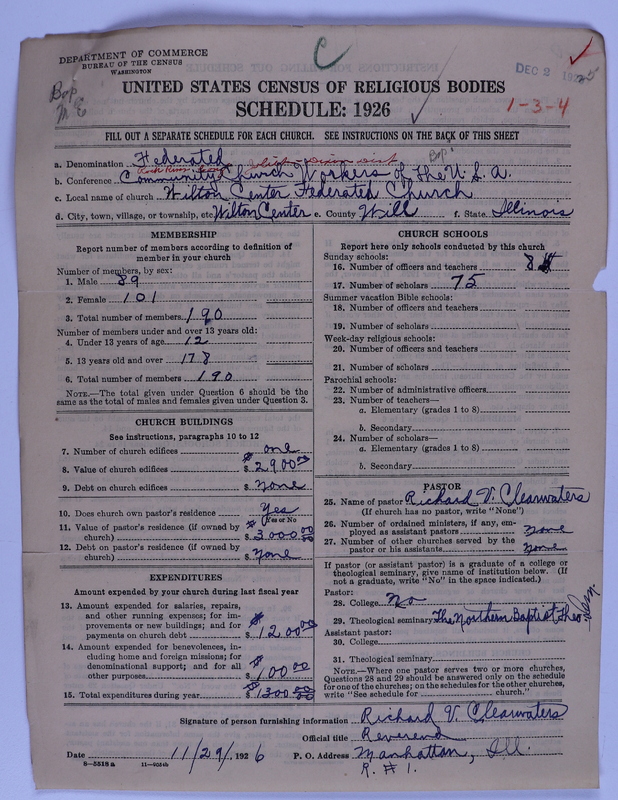 DEPARTMENT OF COMMERCE
BUREAU OF THE CENSUS
WASHINGTON
C
DEC 2
Bap.
M E
UNITED STATES CENSUS OF RELIGIOUS BODIES
SCHEDULE: 1926
1-3-4
FILL OUT A SEPARATE SCHEDULE FOR EACH CHURCH. SEE INSTRUCTIONS ON THE BACK OF THIS SHEET
a. Denomination Federated
Rock River Bap.
b. Conference Community Church Workers of the U.S.A.
c. Local name of church Wilton Center Federated Church
d. City, town, village, or township, etc. Wilton Center e. County Will f. State Illinois
MEMBERSHIP
Report number of members according to definition of member in your church
Number of members, by sex:
1. Male 89
2. Female 101
3. Total number of members 190
Number of members under and over 13 years old:
4. Under 13 years of age 12
5. 13 years old and over 178
6. Total number of members 190
NOTE.—The total given under Question 6 should be the
same as the total of males and females given under Question 3.
CHURCH BUILDINGS
See instructions, paragraphs 10 to 12
7. Number of church edifices one
8. Value of church edifices $2900.00
9. Debt on church edifices $ none
10. Does church own pastor's residence? Yes
(Yes or No)
11. Value of pastor's residence (if owned by
church) $3000.00
12. Debt on pastor's residence (if owned by
church) $ None
EXPENDITURES
Amount expended by your church during last fiscal year
13. Amount expended for salaries, repairs,
and other running expenses; for im-
provements or new buildings; and for
payments on church debt $1200.00
14. Amount expended for benevolences, in-
cluding home and foreign missions; for
denominational support; and for all
other purposes $100.00
15. Total expenditures during year $1300.00
CHURCH SCHOOLS
Report here only schools conducted by this church
Sunday schools:
16. Number of officers and teachers 8
17. Number of scholars 75
Summer vacation Bible schools:
18. Number of officers and teachers
19. Number of scholars
Week-day religious schools:
20. Number of officers and teachers
21. Number of scholars
Parochial schools:
22. Number of administrative officers
23. Number of teachers—
a. Elementary (grades 1 to 8)
b. Secondary
24. Number of scholars—
a. Elementary (grades 1 to 8)
b. Secondary
PASTOR
25. Name of pastor Richard V. Clearwaters
(If church has no pastor, write "None")
26. Number of ordained ministers, if any, em-
ployed as assistant pastors none
27. Number of other churches served by the
pastor or his assistants none
If pastor (or assistant pastor) is a graduate of a college or
theological seminary, give name of institution below. (If
not a graduate, write "No" in the space indicated.)
Pastor:
28. College No
29. Theological seminary The Northern Baptist Theo. Sem.
Assistant pastor:
30. College
31. Theological seminary
NOTE.—Where one pastor serves two or more churches,
Questions 28 and 29 should be answered only on the schedule
for one of the churches; on the schedules for the other churches,
write "See schedule for ........ church."
Signature of person furnishing information Richard V. Clearwaters
Official title Reverend
Date 11/29/, 1926 P. O. Address Manhattan, Ill.
R. #1.
8-5518 a